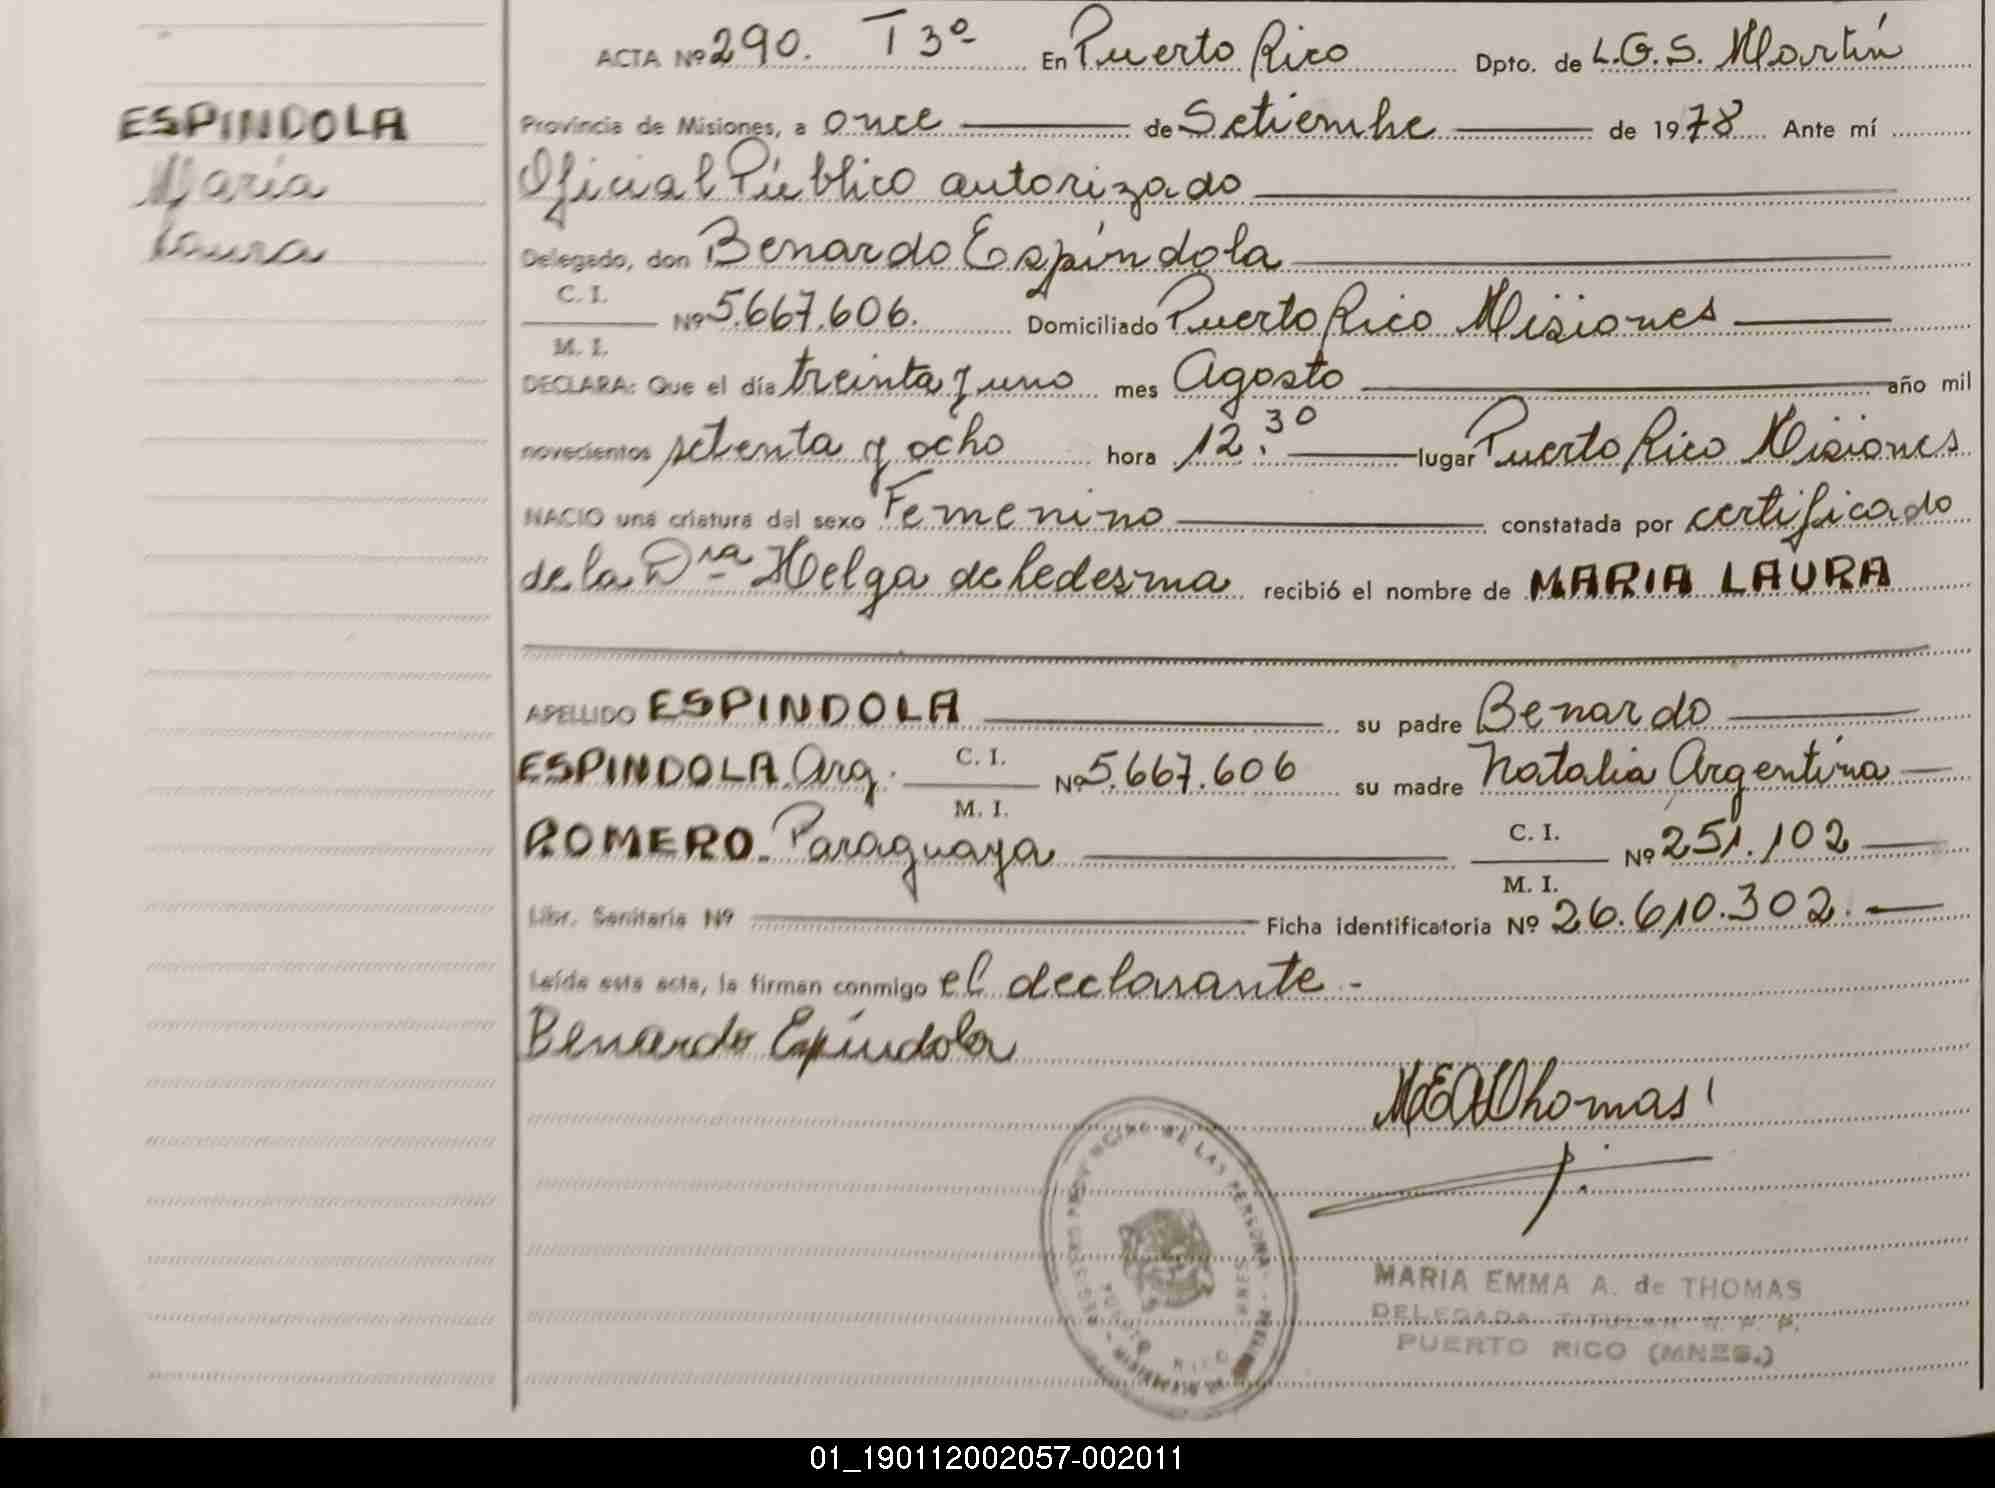 ESPINDOLA
María
Laura
ACTA Nº 290. T 3º En Puerto Rico Dpto. de L.G.S. Martín
Provincia de Misiones, a once de Setiembre de 1978 Ante mí
Oficial Público autorizado
Delegado, don Benardo Espíndola
C. I.
Nº 5.667.606. Domiciliado Puerto Rico Misiones
M. I.
DECLARA: Que el día treinta y uno mes Agosto año mil
novecientos setenta y ocho hora 12.30 lugar Puerto Rico Misiones
NACIO una criatura del sexo Femenino constatada por certificado
de la Dra Helga de Ledesma recibió el nombre de MARIA LAURA
APELLIDO ESPINDOLA su padre Benardo
ESPINDOLA Arg. C. I. Nº 5.667.606 su madre Natalia Argentina
M. I.
ROMERO. Paraguaya C. I. Nº 251.102
M. I.
Libr. Sanitaria Nº Ficha identificatoria Nº 26.610.302.
Leída esta acta, la firman conmigo el declarante -
Benardo Espíndola
MEAThomas
REGISTRO PROVINCIAL DE LAS PERSONAS
PUERTO RICO
MISIONES
MARIA EMMA A. de THOMAS
DELEGADA TITULAR R. P. P.
PUERTO RICO (MNES.)
01_190112002057-002011